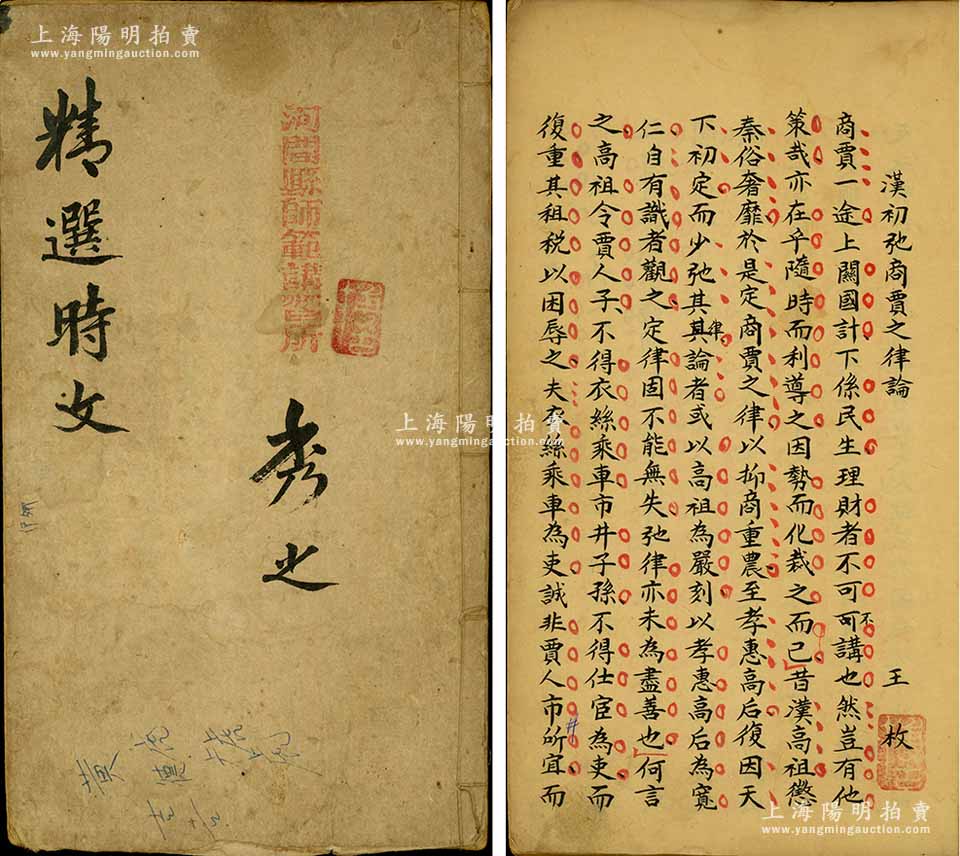 上海陽明拍賣
www.yangmingauction.com
精選時文
河間縣師範講習所
秀之
上海陽明拍賣
www.yangmingauction.com
漢初弛商賈之律論
王枚
商賈一途上關國計下係民生理財者不可可講也然豈有他
不
策哉亦在乎隨時而利導之因勢而化裁之而已昔漢高祖懲
秦俗奢靡於是定商賈之律以抑商重農至孝惠高后復因天
下初定而少弛其其論者或以高祖為嚴刻以孝惠高后為寬
律
仁自有識者觀之定律固不能無失弛律亦未為盡善也何言
之高祖令賈人子不得衣絲乘車市井子孫不得仕宦為吏而
復重其租稅以困辱之夫衣絲乘車為吏誠非賈人市所宜而
井
上海陽明拍賣
www.yangmingauction.com